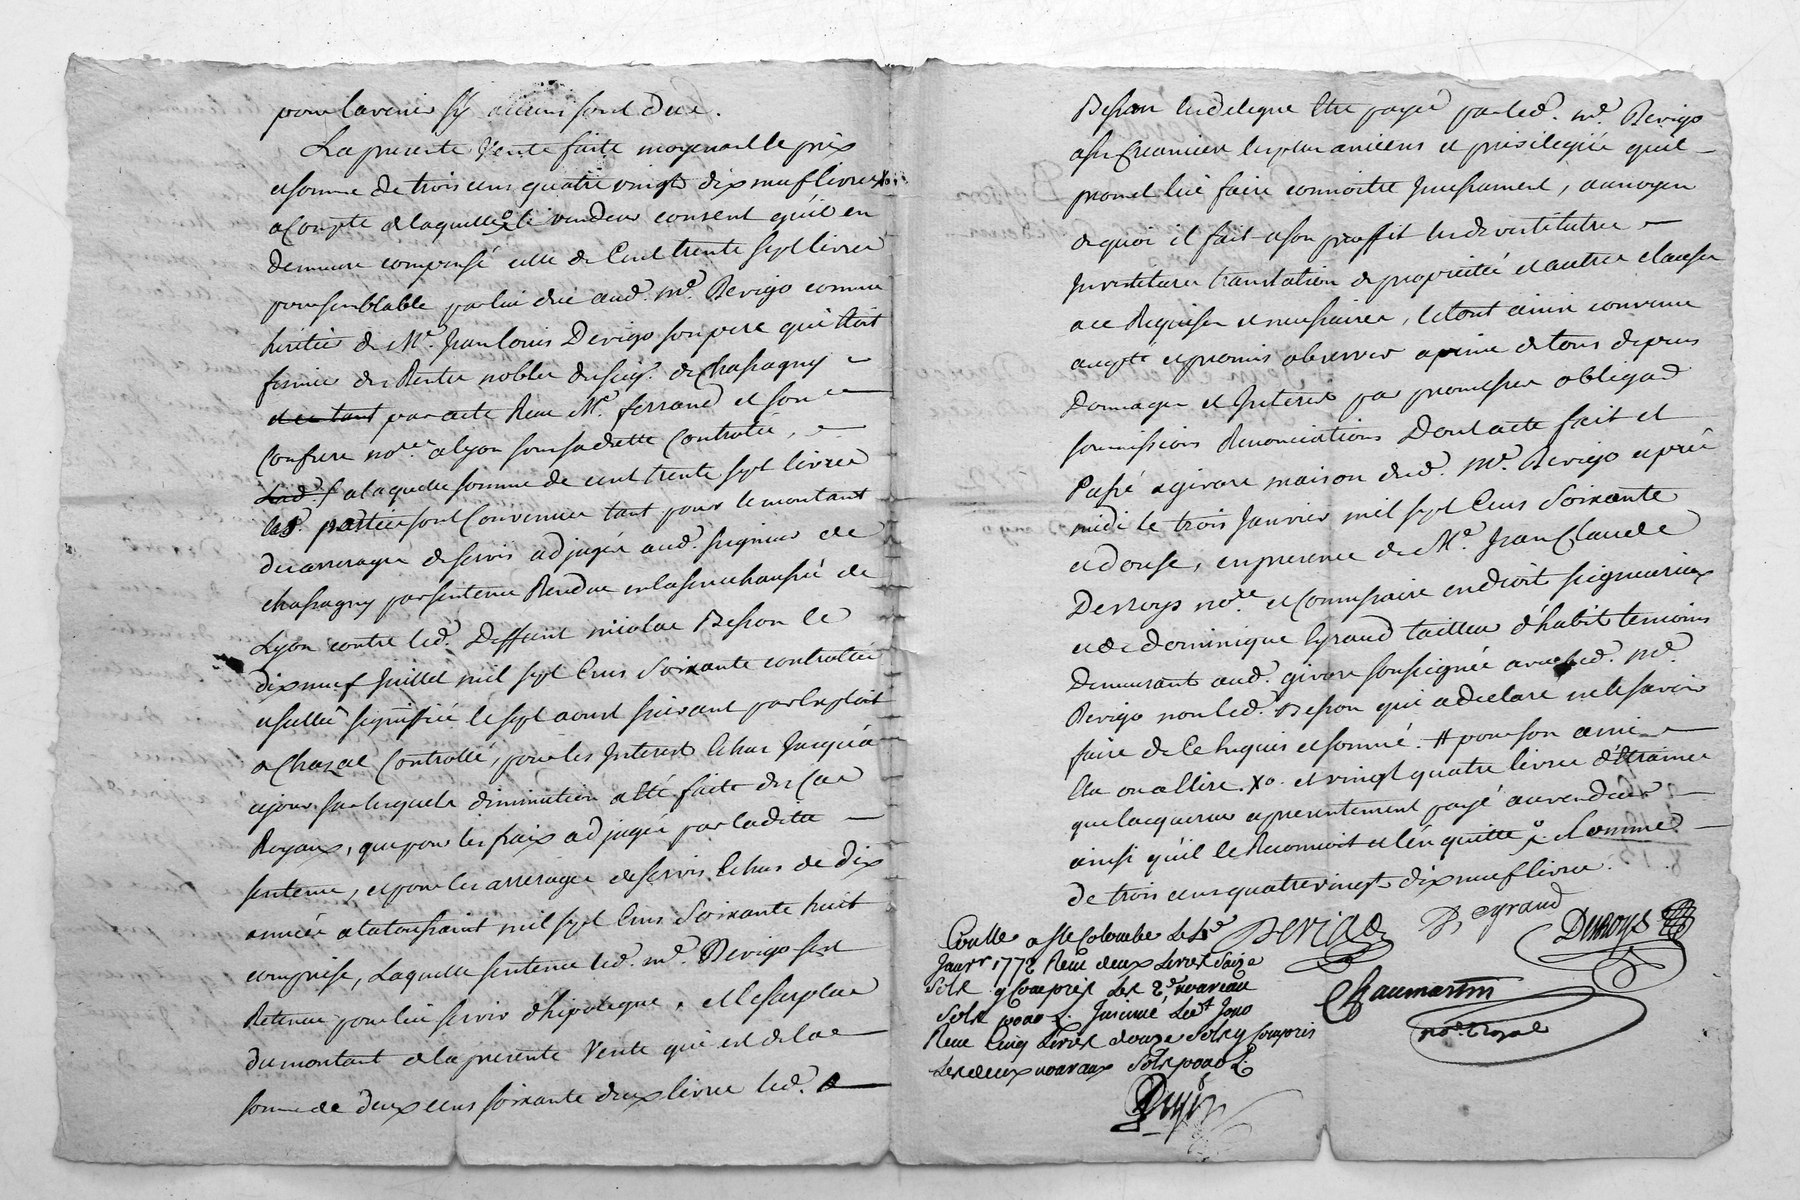 pour lavenir sy aucuns sont due.
La presente Vente faite moyenant le prix
et somme de trois cens quatre vingt dix neuf livres Xo
a Compte de laquelle le vendeur consent qu'il en
demeure compensé celle de Cent trente sept livres
pour semblable par lui due aud. me. Devigo comme
heritier de Me. Jean louis Devigo son pere qui étoit
fermier des Rentes nobles du seig. de chassagny
et en tant par acte Reçu Me. ferrand et son
Confrere nore. a lyon sous sa datte Controllé,
Led. f a laquelle somme de cent trente sept livres
les. parties sont Convenues tant pour le montant
des arrerages de servis adjugés aud. seigneur de
chassagny par sentence Rendue en la senechaussée de
Lyon contre led. Deffunt nicolas Besson le
dix neuf Juillet mil sept Cens Soixante controllée
et scellée signiffiée le sept aoust suivant par Exploit
de Chazal Controllé, pour les Interest Echus Jusqu'a
ce jour sur lesquels diminution a été faite des Cas
Royaux, que pour les fraix adjugés par ladite
sentence, et pour les arrerages de servis Echus de dix
années a la toussaint mil sept Cens Soixante huit
comprise, Laquelle sentence led. me. Devigo s'est
Retenue pour lui servir d'hipoteque, et le surplus
du montant de la presente Vente qui est de la
somme de deux cens soixante deux livres led.
Besson le delegue être payée par led. me. Devigo
a ses Creanciers les plus anciens et privilegiés qu'il
promet lui faire connoitre Incessament, au moyen
de quoi il fait a son proffit les devestitures
Investitures translation de proprieté et autres clauses
a ce Requises et necessaires, le tout ainsi convenu
accepté et promis observer a peine de tous depens
Dommages et Interest par promesses obligaõ
soumissions Renonciations Dont acte fait et
Passé a givors maison dud. me. Devigo aprés
midi le trois Janvier mil sept Cens Soixante
et douse, en presence de Me. Jean Claude
Desroys nore. et Commissaire en droits seigneuriaux
et de dominique Eyraud tailleur d'habits temoins
Demeurant aud. givors soussignés avec led. me.
Devigo non led. Besson qui a declaré ne le savoir
faire de Ce Enquis et sommé. # pour son ami
Elu ou a Elire. Xo. et vingt quatre livres d'étraines
que lacquereur a presentement payé au vendeur
ainsi qu'il le Reconnoit et l'en quitte et somme
de trois cens quatre vingt dix neuf livres.
Devigo D Eyraud Desroys
Conllé a Ste Colombe Le
Janvr 1772 Reçu deux Livres Seize
Sols y Compris Les 2 nouveau
Sols pour L. Insinué Led. Jour
Reçu Cinq Livres douze Sols y Compris
Les deux nouveaux Sols pour L.
Chaumartin
nore. Royal